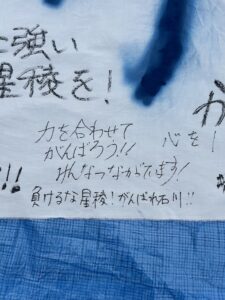 強い
星稜を!
力を合わせて
がんばろう!!
みんなつながっています!
負けるな星稜!がんばれ石川!!
心を
!!